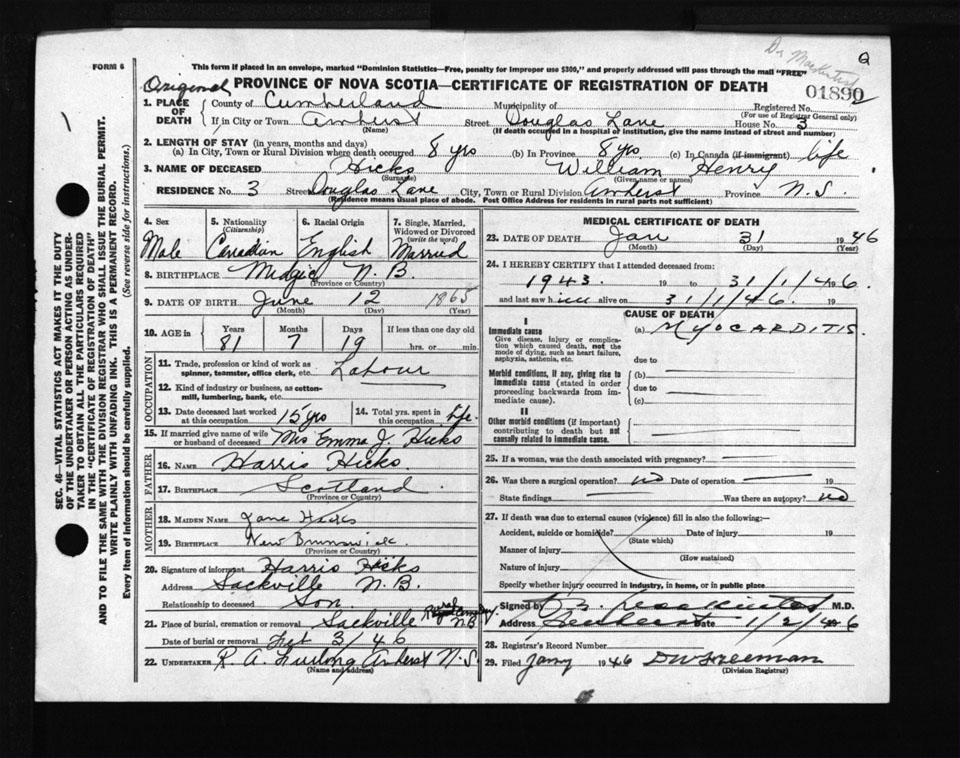 Dr MacKintosh
FORM 6
This form if placed in an envelope, marked "Dominion Statistics—Free, penalty for improper use $300," and properly addressed will pass through the mail "FREE"
Original PROVINCE OF NOVA SCOTIA—CERTIFICATE OF REGISTRATION OF DEATH
01890
1. PLACE OF DEATH County of Cumberland Municipality of Registered No.
(For use of Registrar General only)
If in City or Town Amherst Street Douglas Lane House No. 3
(Name) (If death occurred in a hospital or institution, give the name instead of street and number)
2. LENGTH OF STAY (in years, months and days)
(a) In City, Town or Rural Division where death occurred 8 yrs (b) In Province 8 yrs. (c) In Canada (if immigrant) life
3. NAME OF DECEASED Hicks William Henry
(Surname) (Given name or names)
RESIDENCE No. 3 Street Douglas Lane City, Town or Rural Division Amherst Province N.S.
(Residence means usual place of abode. Post Office Address for residents in rural parts not sufficient)
4. Sex 5. Nationality (Citizenship) 6. Racial Origin 7. Single, Married, Widowed or Divorced (write the word)
Male Canadian English Married
8. BIRTHPLACE Midgic N.B.
(Province or Country)
9. DATE OF BIRTH June 12 1865
(Month) (Day) (Year)
10. AGE in Years Months Days If less than one day old
81 7 19 hrs. or min.
OCCUPATION
11. Trade, profession or kind of work as spinner, teamster, office clerk, etc. Labour
12. Kind of industry or business, as cotton-mill, lumbering, bank, etc.
13. Date deceased last worked at this occupation 15 yrs 14. Total yrs. spent in this occupation Life.
15. If married give name of wife or husband of deceased Mrs Emma J. Hicks
FATHER
16. NAME Harris Hicks.
17. BIRTHPLACE Scotland
(Province or Country)
MOTHER
18. MAIDEN NAME Jane Hicks
19. BIRTHPLACE New Brunswick
(Province or Country)
20. Signature of informant Harris Hicks
Address Sackville N.B.
Relationship to deceased Son.
21. Place of burial, cremation or removal Sackville Rural Cemetery. N.B
Date of burial or removal Feb 3/46
22. UNDERTAKER R. A. Furlong Amherst N.S.
(Name and address)
MEDICAL CERTIFICATE OF DEATH
23. DATE OF DEATH Jan 31 1946
(Month) (Day) (Year)
24. I HEREBY CERTIFY that I attended deceased from:
1943. 19 to 31/1/46. 19
and last saw him alive on 31/1/46. 19
CAUSE OF DEATH
I
Immediate cause (a) MYOCARDITIS.
Give disease, injury or complication which caused death, not the mode of dying, such as heart failure, asphyxia, asthenia, etc.
due to
Morbid conditions, if any, giving rise to immediate cause (stated in order proceeding backwards from immediate cause).
(b)
due to
(c)
II
Other morbid conditions (if important) contributing to death but not causally related to immediate cause.
25. If a woman, was the death associated with pregnancy?
26. Was there a surgical operation? no Date of operation
State findings Was there an autopsy? no
27. If death was due to external causes (violence) fill in also the following:—
Accident, suicide or homicide? Date of injury 19
(State which)
Manner of injury
(How sustained)
Nature of injury
Specify whether injury occurred in industry, in home, or in public place
Signed by M.D.
Address Date 1/2/46
28. Registrar's Record Number
29. Filed Jany 1946 DW Freeman
(Division Registrar)
SEC. 46—VITAL STATISTICS ACT MAKES IT THE DUTY
OF THE UNDERTAKER OR PERSON ACTING AS UNDERTAKER TO OBTAIN ALL THE PARTICULARS REQUIRED
IN THE "CERTIFICATE OF REGISTRATION OF DEATH"
AND TO FILE THE SAME WITH THE DIVISION REGISTRAR WHO SHALL ISSUE THE BURIAL PERMIT.
WRITE PLAINLY WITH UNFADING INK. THIS IS A PERMANENT RECORD.
Every item of information should be carefully supplied. (See reverse side for instructions.)